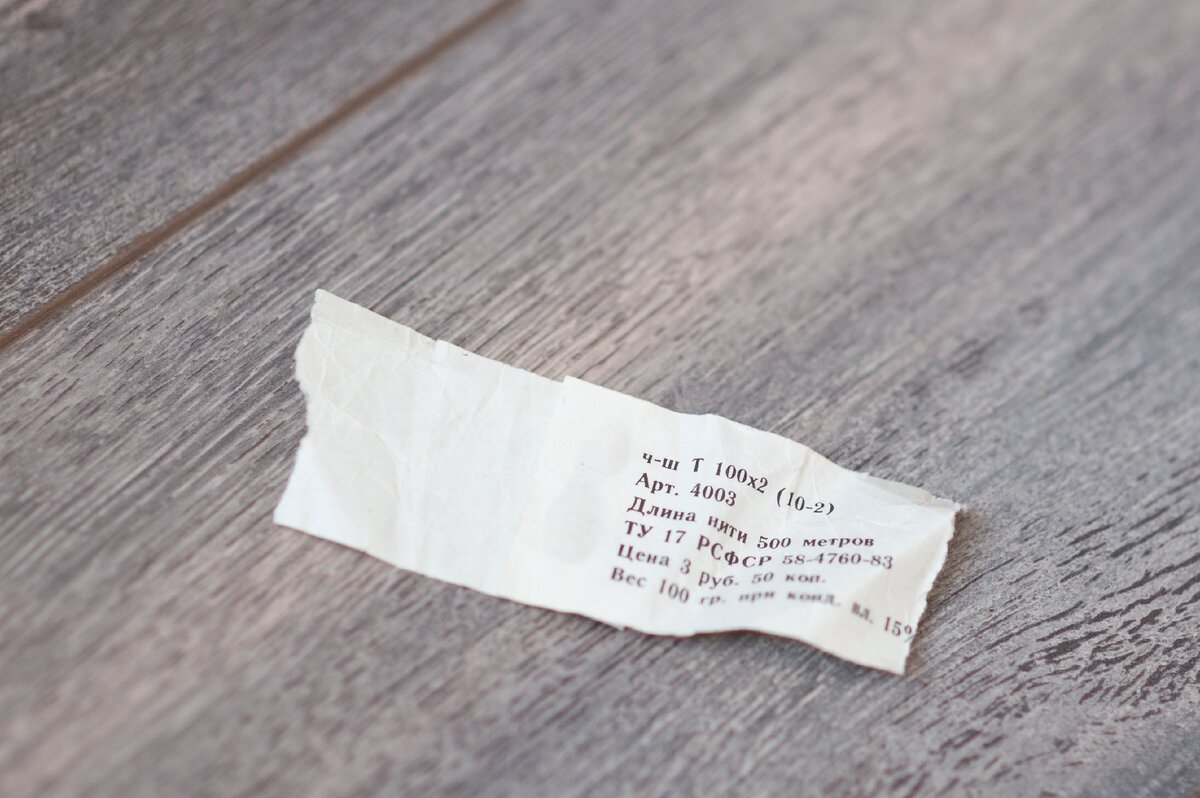 ч-ш Т 100х2 (10-2)
Арт. 4003
Длина нити 500 метров
ТУ 17 РСФСР 58-4760-83
Цена 3 руб. 50 коп.
Вес 100 гр. при конд. вл. 15%